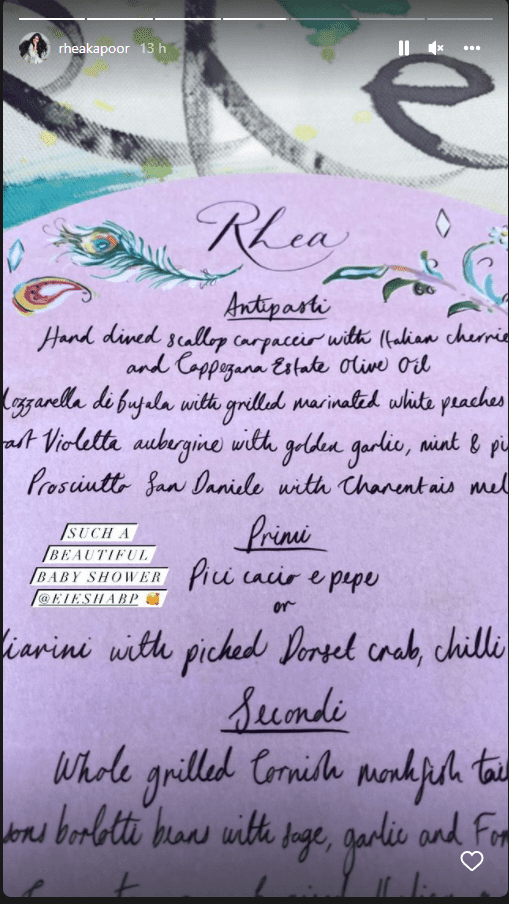 rheakapoor 13 h
Rhea
Antipasti
Hand dined scallop carpaccio with Italian cherrie
and Cappezana Estate Olive Oil
ozzarella di bufala with grilled marinated white peaches
Violetta aubergine with golden garlic, mint & pi
Prosciutto San Daniele with Charentais mel
SUCH A
BEAUTIFUL
BABY SHOWER
@EIESHABP
Primi
Pici cacio e pepe
or
liarini with picked Dorset crab, chilli
Secondi
Whole grilled Cornish monkfish tail
borlotti beans with sage, garlic and